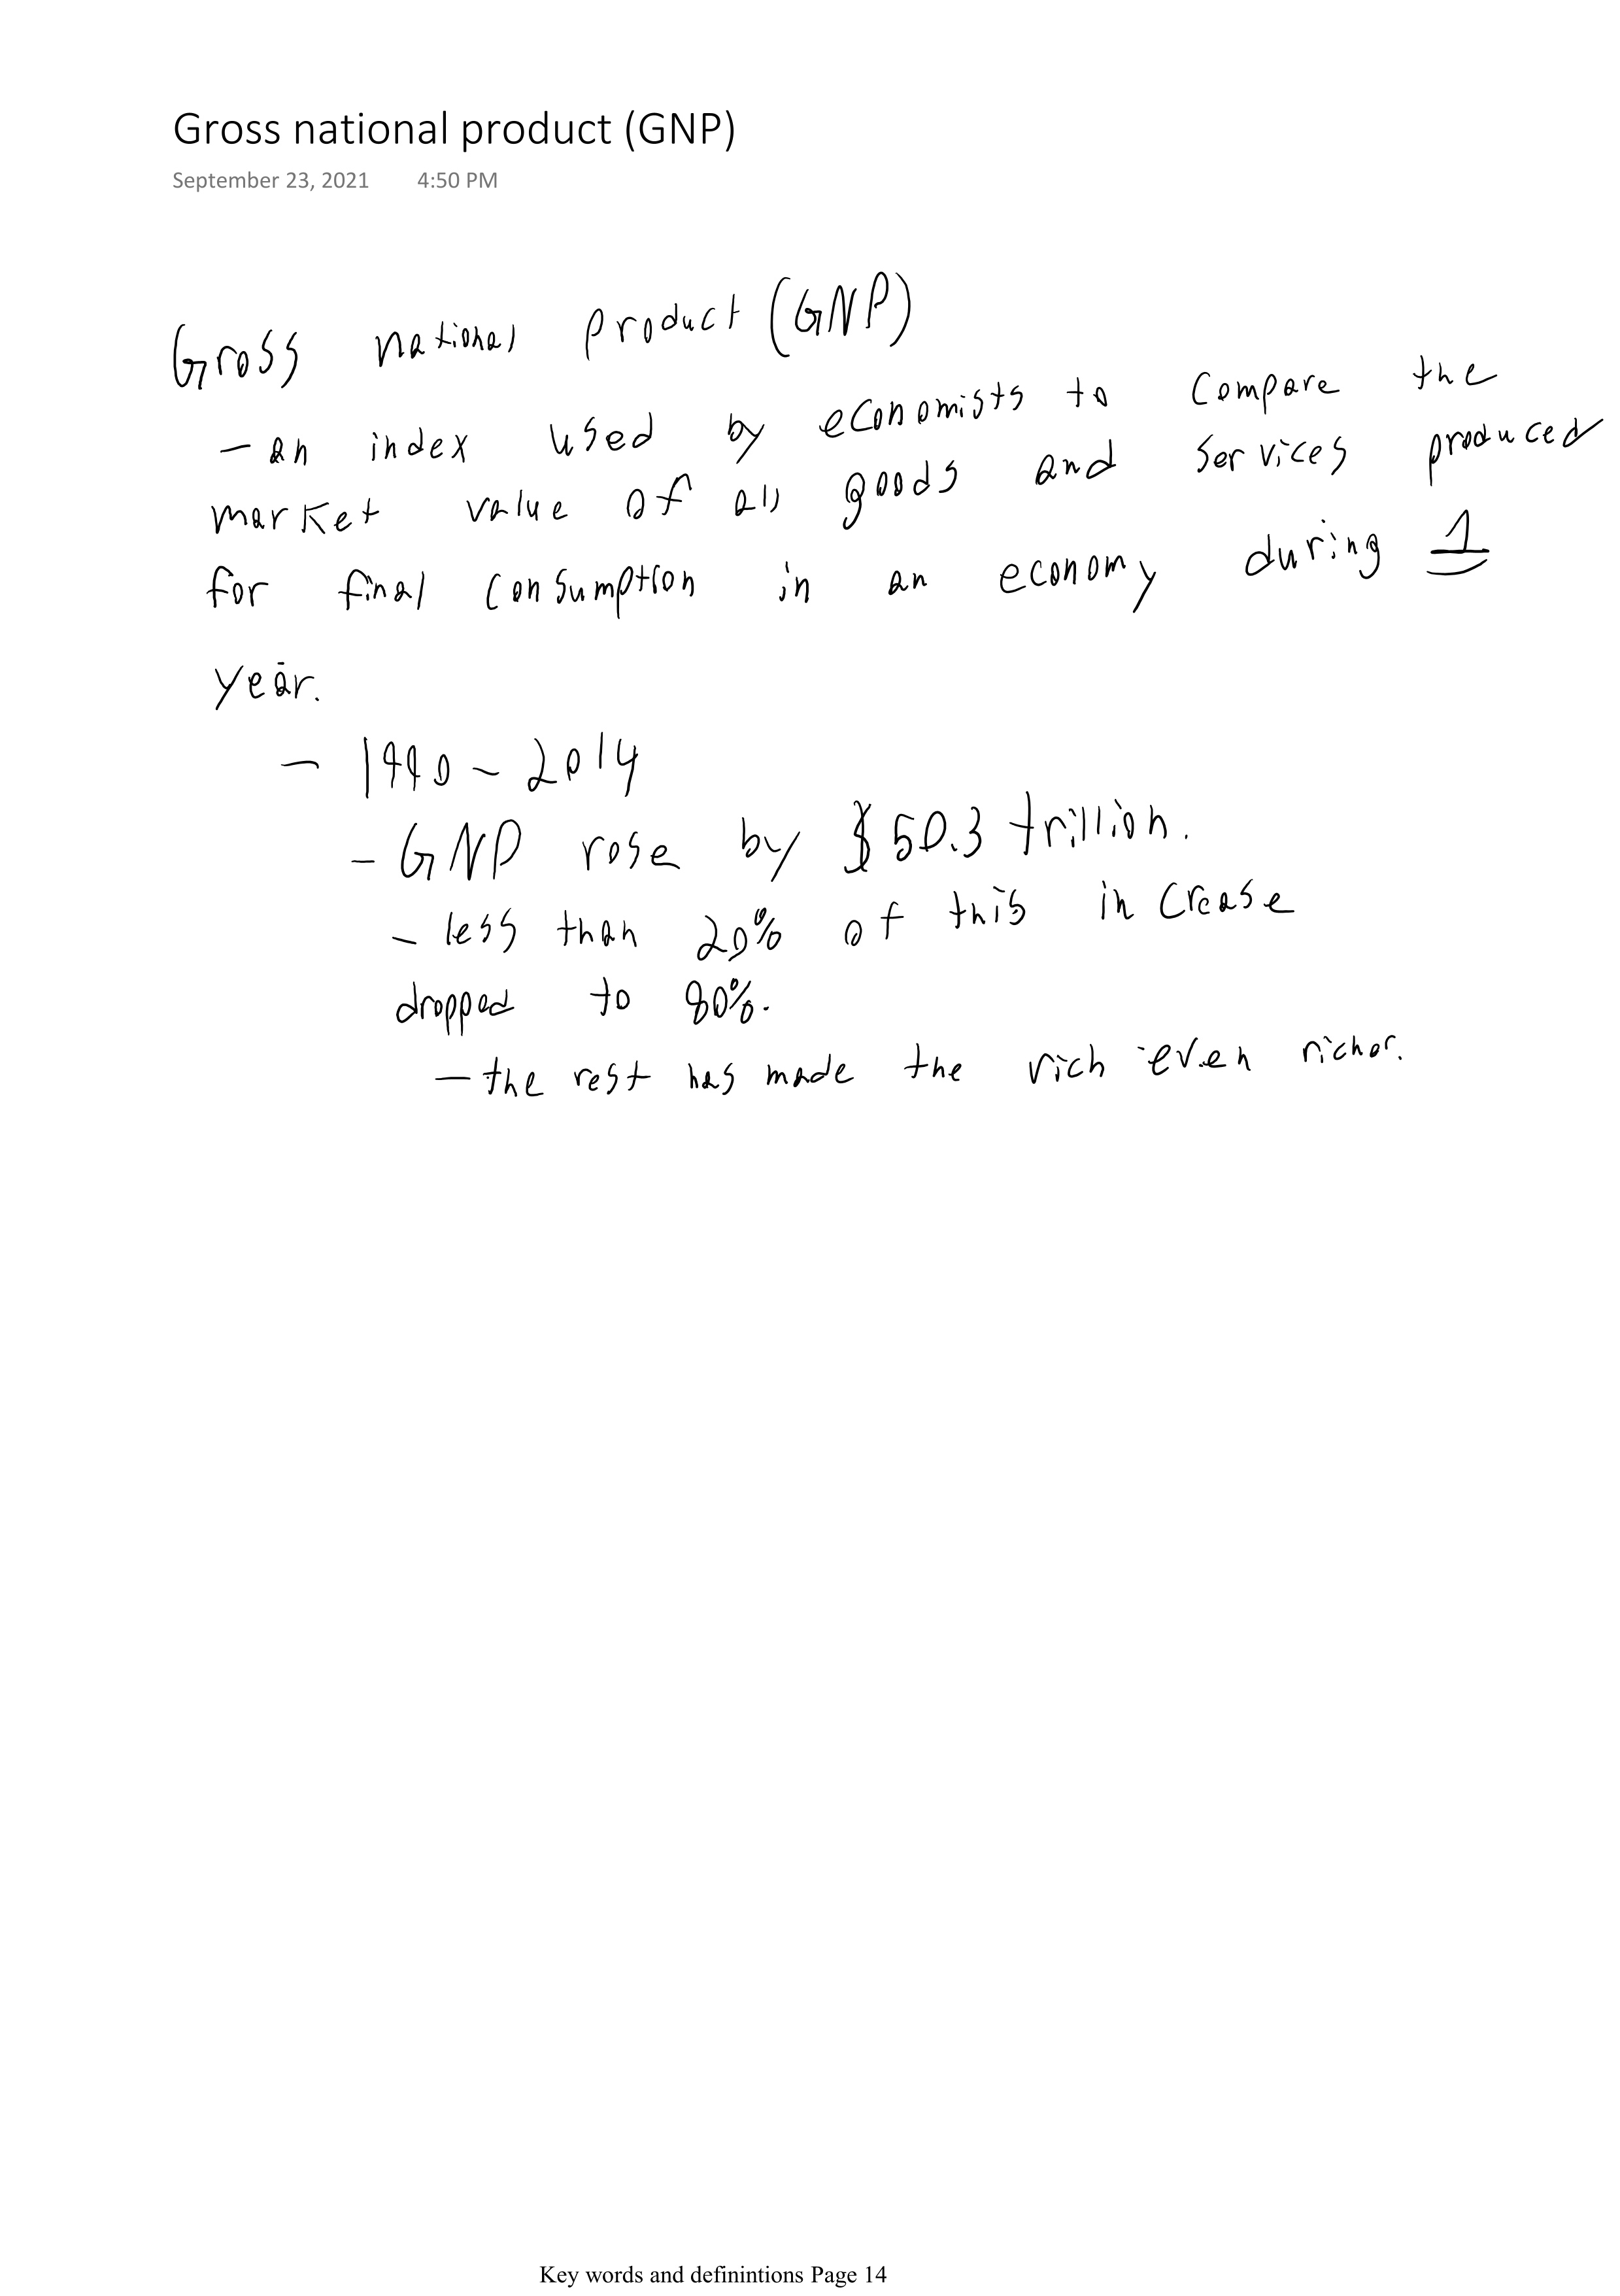 Gross national product (GNP)
September 23, 2021 4:50 PM
Gross national product (GNP)
- an index used by economists to compare the
market value of all goods and services produced
for final consumption in an economy during 1
year.
- 1990 - 2014
- GNP rose by $50.3 trillion.
- less than 20% of this increase
dropped to 80%.
- the rest has made the rich even richer.
Key words and definintions Page 14